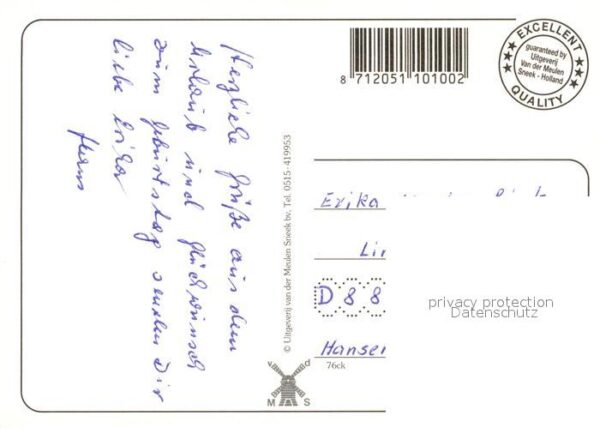 Herzliche Grüße aus dem
Urlaub und Glückwunsch
zum Geburtstag senden Dir
liebe Erika
8 712051 101002
EXCELLENT
guaranteed by
Uitgeverij
Van der Meulen
Sneek - Holland
QUALITY
© Uitgeverij van der Meulen Sneek bv. Tel. 0515-419953
Erika
D 8 8
privacy protection
Datenschutz
76ck
v d
M S